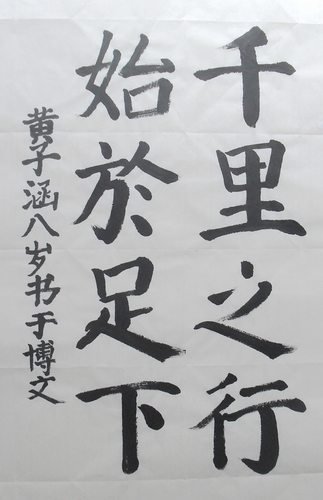 千里之行
始於足下
黄子涵八岁书于博文